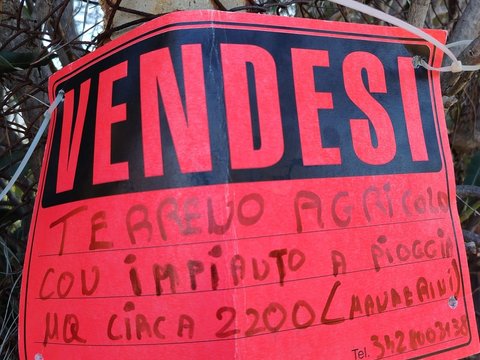 VENDESI
TERRENO AGRICOLO
CON IMPIANTO A PIOGGIA
MQ CIRCA 2200 (MANDARINI)
Tel.